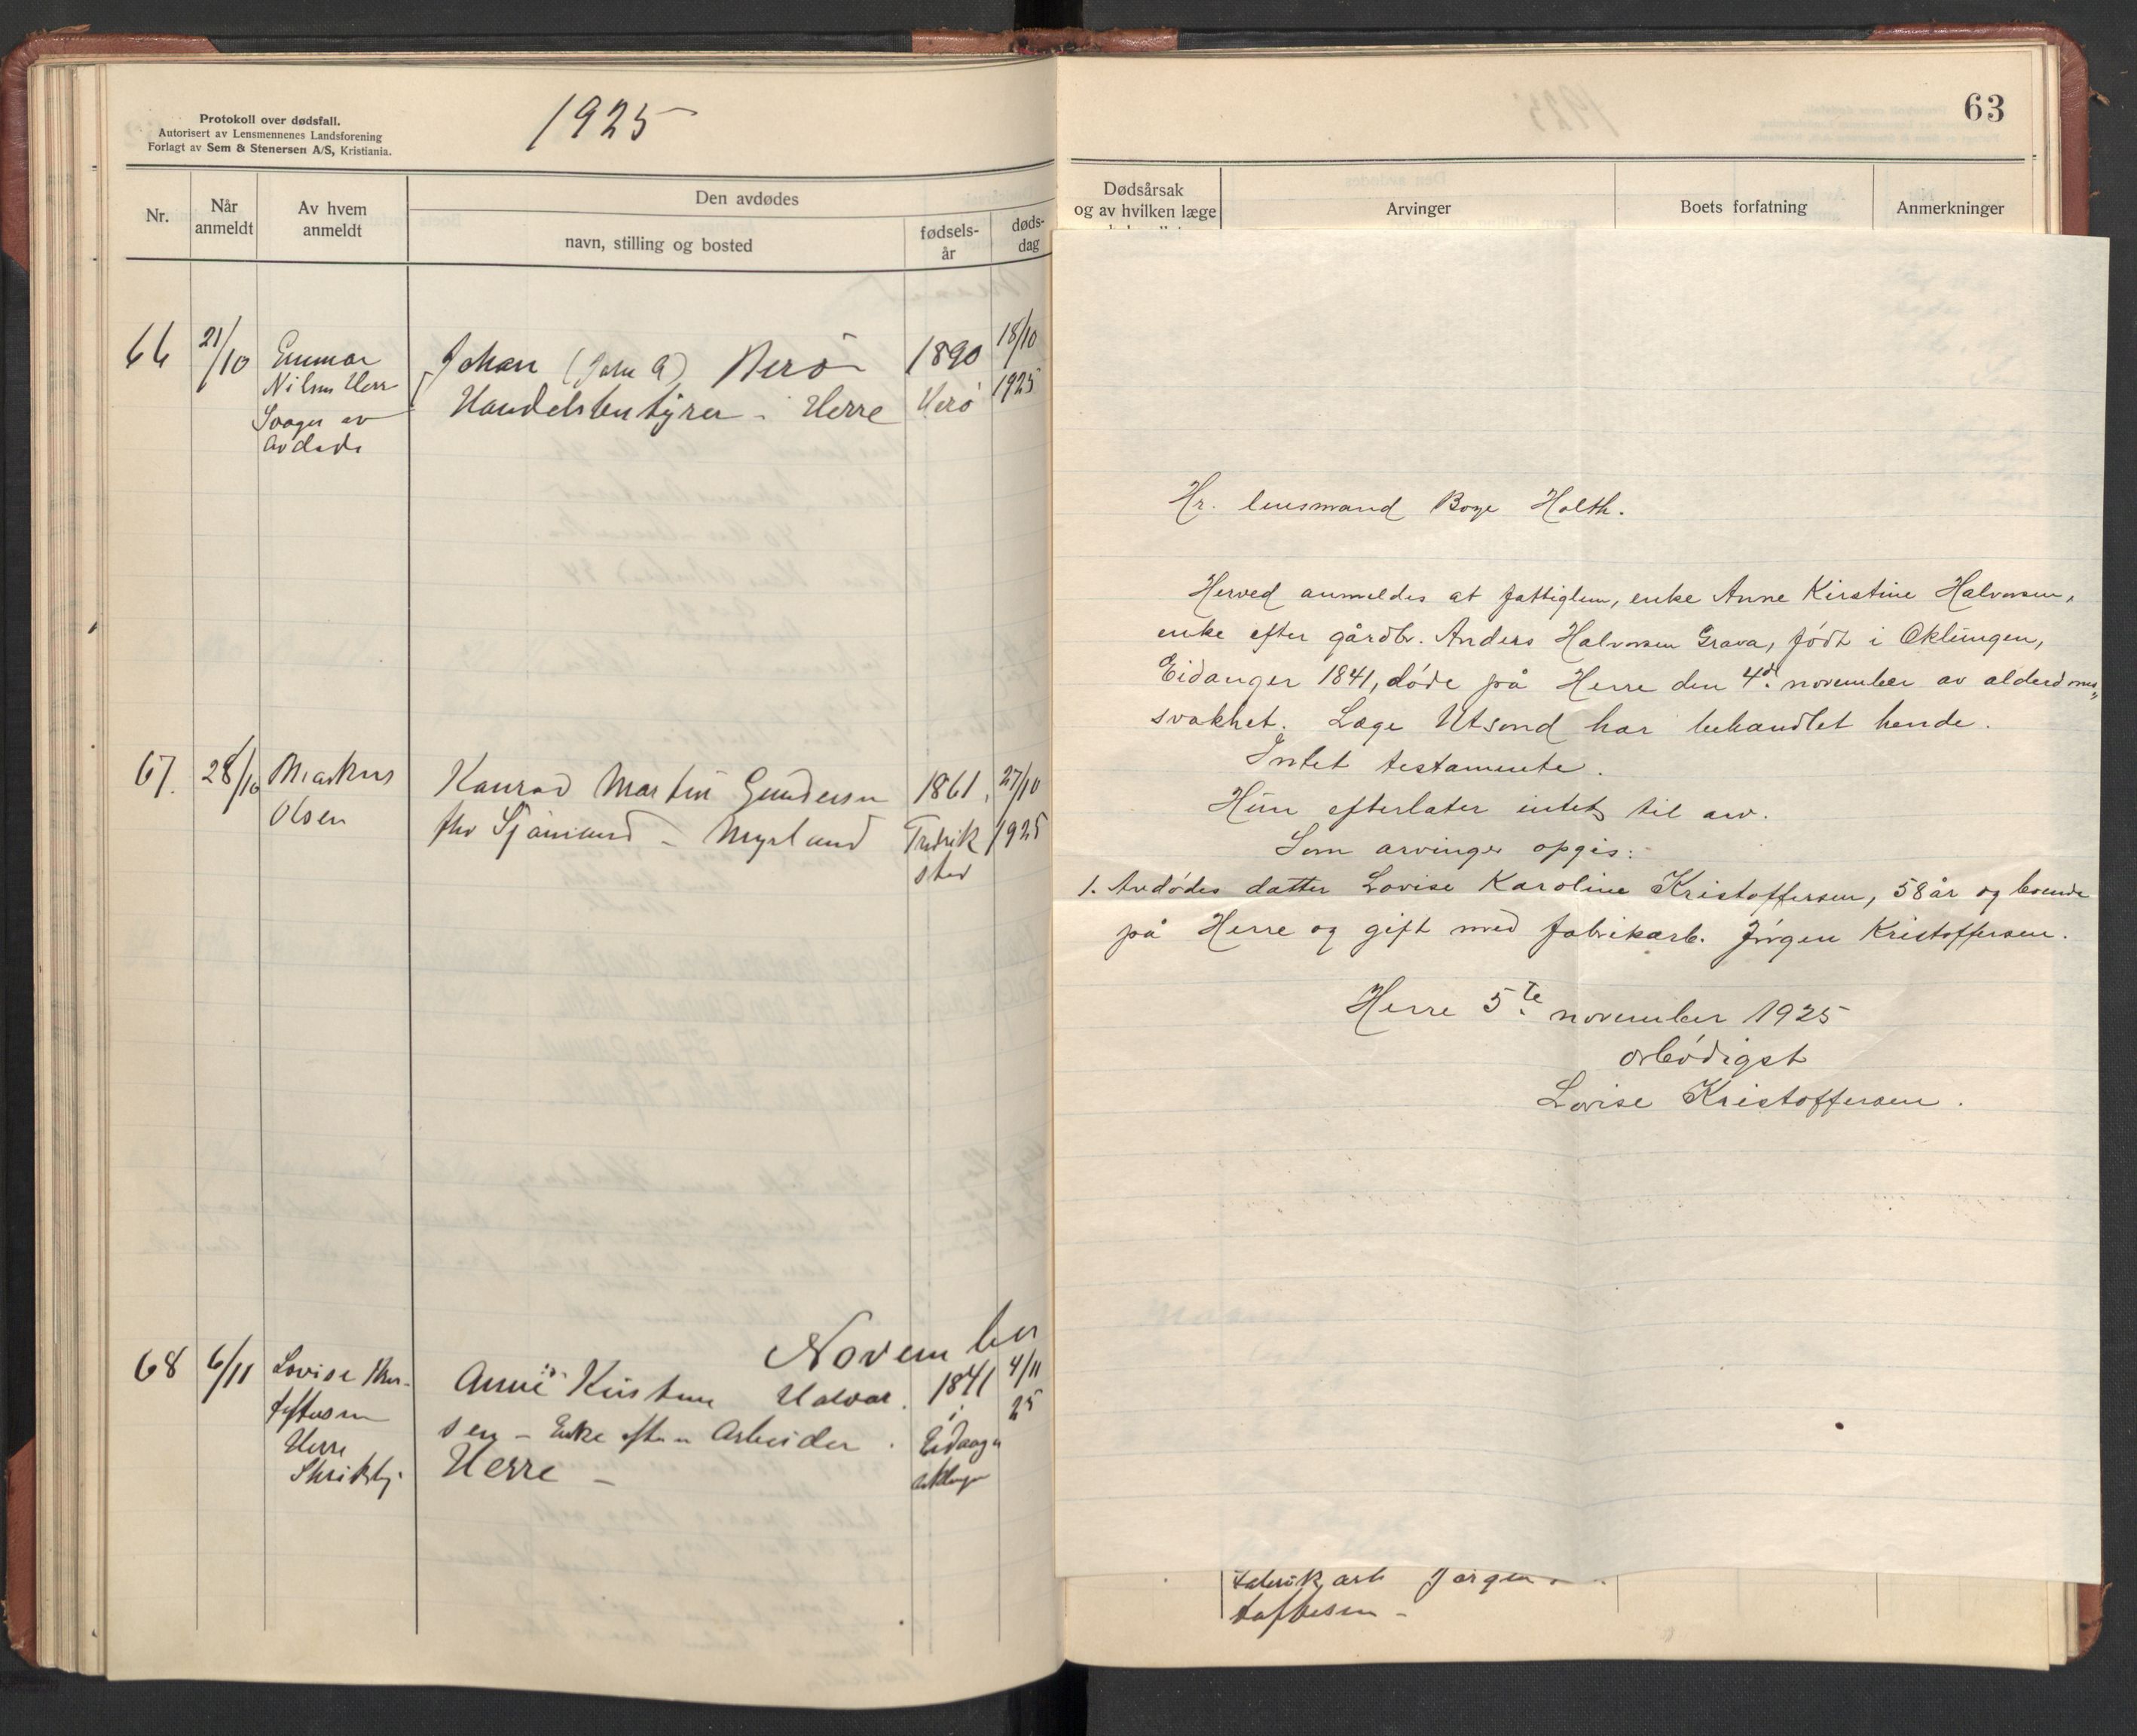 Protokoll over dødsfall.
Autorisert av Lensmennenes Landsforening
Forlagt av Sem & Stenersen A/S, Kristiania.
1925
Nr.
Når
anmeldt
Av hvem
anmeldt
Den avdødes
navn, stilling og bosted
fødsels-
år
døds-
dag
66
21/10
Emmar
Nilsen Herr
Svoger av
avdøde
Johan (John A) Nerö
Handelsbestyrer - Herre
1890
18/10
1925
67.
28/10
Markus
Olsen
Konrad Martin Gundersen
fhv Sjömand - Myrland
1861.
Fredrik
stad
27/10
1925
November
68
6/11
Lovise Kris-
toffersen
Herre
Skriftlig
Anne Kirstine Halvor.
sen - Enke efter Arbeider.
Herre -
1841
i
Eidanger
4/11
25
63
Dødsårsak
og av hvilken læge
Arvinger
Boets forfatning
Anmerkninger
Hr. lensmand Boye Holth.
Herved anmeldes at fattiglem, enke Anne Kirstine Halvorsen,
enke efter gårdbr. Anders Halvorsen Grava, født i Oklungen,
Eidanger 1841, døde på Herre den 4de november av alderdoms„
svakhet. Læge Utsond har behandlet hende.
Intet testamente.
Hun efterlater intet til arv.
Som arvinger opgis:
1. Avdødes datter Lovise Karoline Kristoffersen, 58 år og boende
på Herre og gift med fabrikarb. Jørgen Kristoffersen.
Herre 5te november 1925
ærbødigst
Lovise Kristoffersen.
Fabrik arb Jørgen
toffersen -